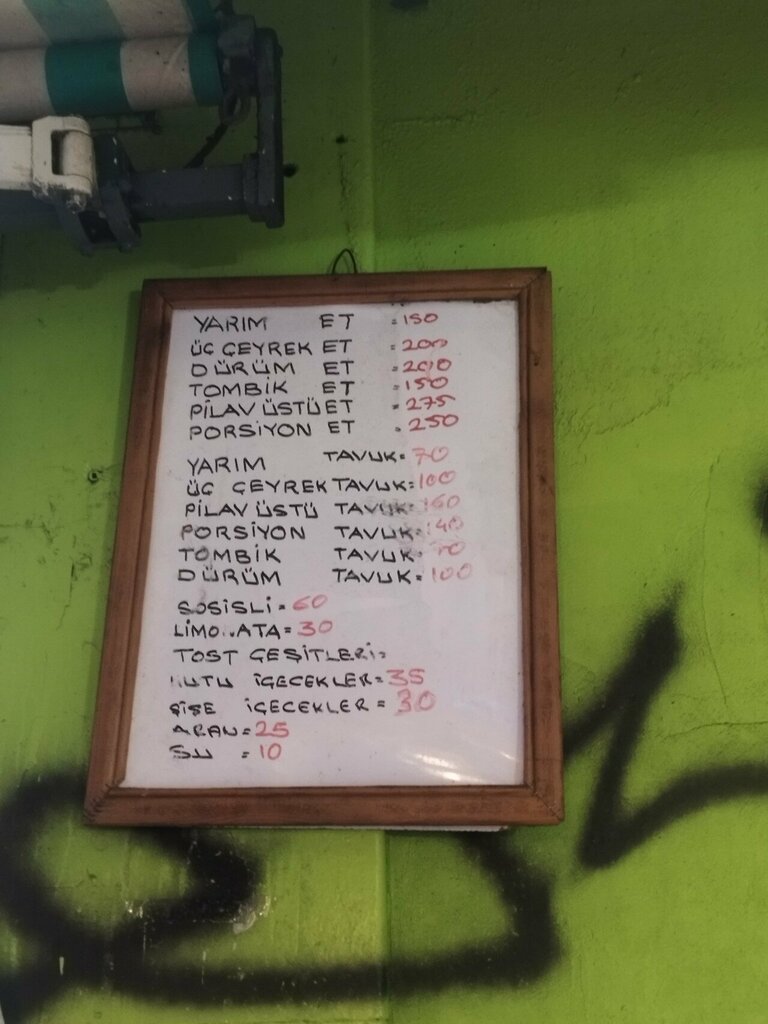 YARIM ET = 150
ÜÇ ÇEYREK ET = 200
DÜRÜM ET = 200
TOMBİK ET = 150
PİLAV ÜSTÜ ET = 275
PORSİYON ET = 250
YARIM TAVUK = 70
ÜÇ ÇEYREK TAVUK = 100
PİLAV ÜSTÜ TAVUK = 160
PORSİYON TAVUK = 140
TOMBİK TAVUK =
DÜRÜM TAVUK = 100
SOSİSLİ = 60
LİMO..ATA = 30
TOST ÇEŞİTLERİ =
KUTU İÇECEKLER = 35
ŞİŞE İÇECEKLER = 30
AYRAN = 25
SU = 10